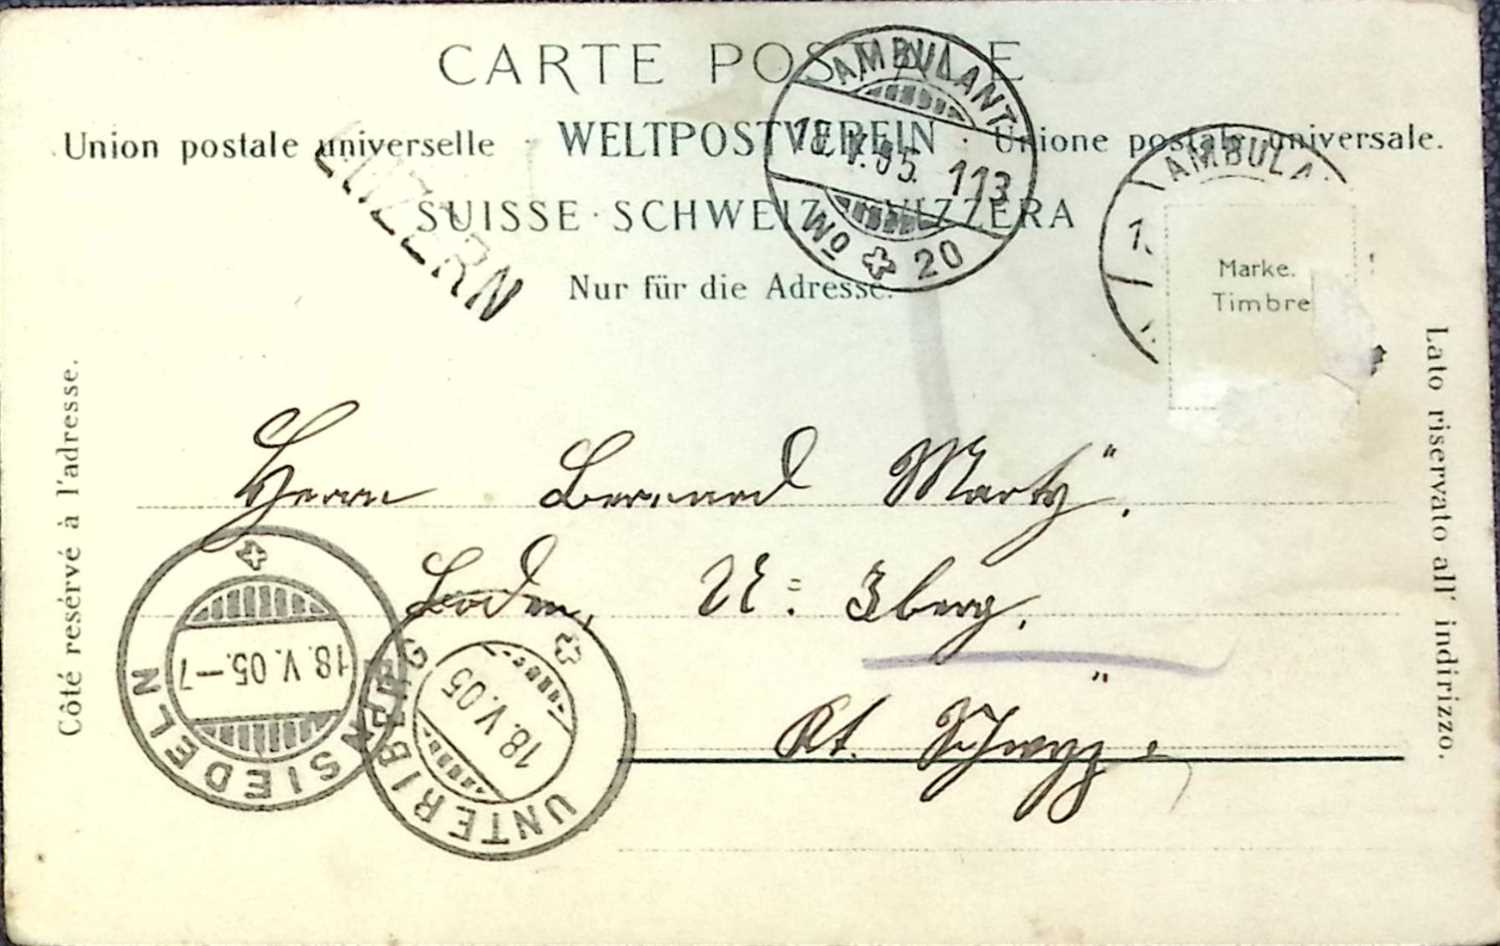 CARTE POSTALE
Union postale universelle · WELTPOSTVEREIN · Unione postale universale.
SUISSE · SCHWEIZ · SVIZZERA
Nur für die Adresse.
LUZERN
AMBULANT
18.V.05. 113
No 20
AMBULA
Marke.
Timbre
Côté resérvé à l'adresse.
Lato riservato all' indirizzo.
Herrn Bernard Marty.
Boden, U: Iberg,
Kt. Schwyz.
18.V.05.-7
EINSIEDELN
18.V.05
UNTERIBERG